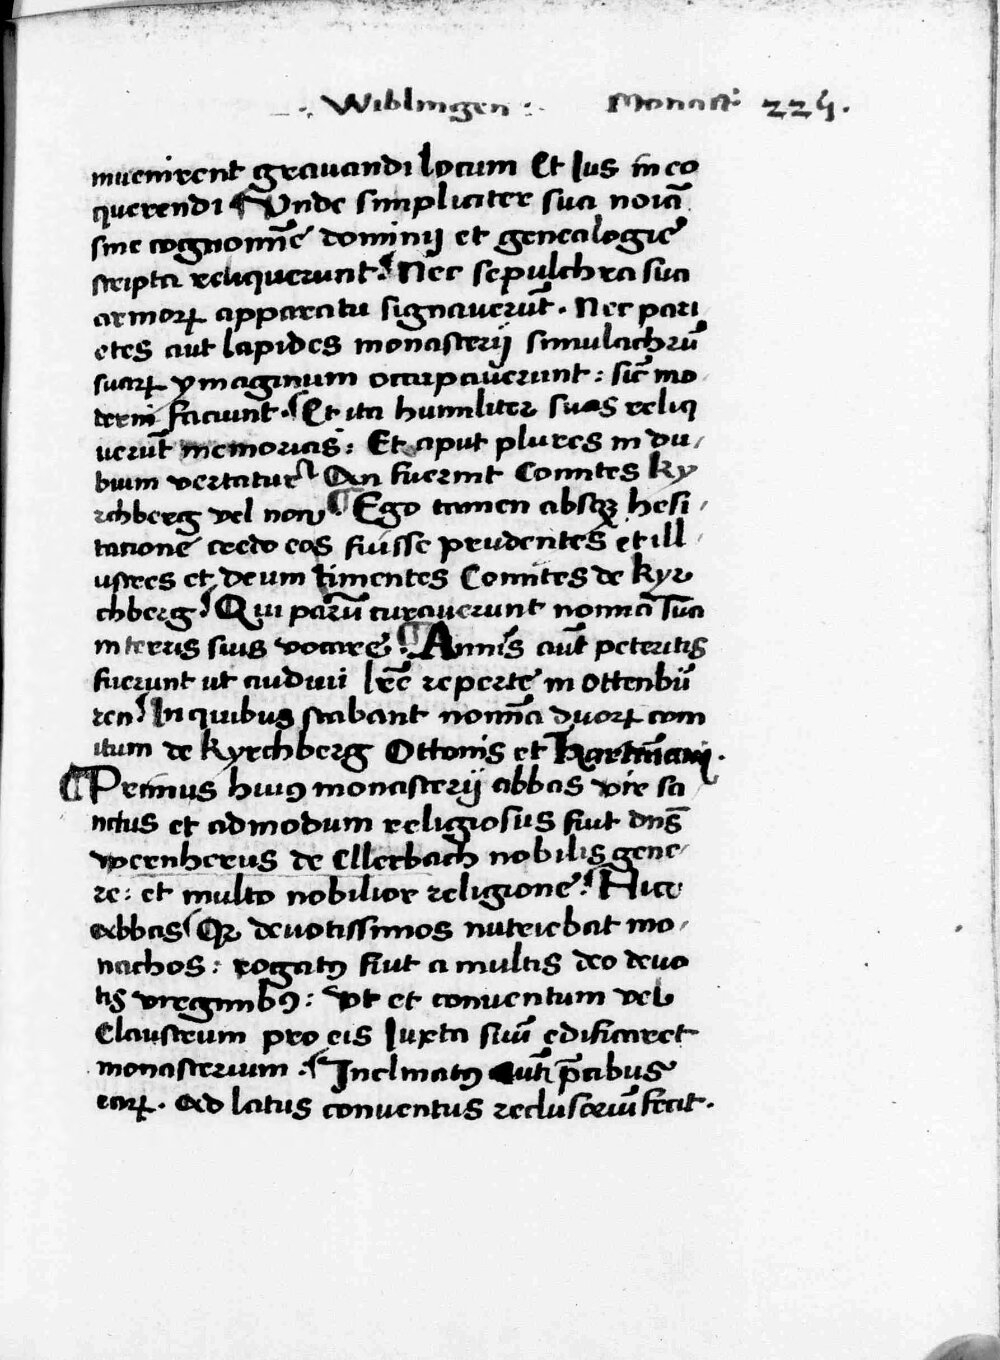 .. Wiblingen : Monast: 224.
inuenirent grauandi locum Et Ius in eo
querendi ¶ Vnde simpliciter sua noīa
sine cognomīe dominij et genealogie
scripta reliquerunt. Nec sepulchra sua
armoꝝ apparatu signauerūt. Nec pari
etes aut lapides monasterij simulachrū
suaꝝ ymaginum occupauerunt: sic̄ mo
derni faciunt. Et ita humiliter suas reliq
uerūt memorias: Et aput plures in du
bium vertatur An fuerint Comites Ky
rchberg vel non. ¶ Ego tamen absqꝫ hesi
tatione credo eos fuisse prudentes et ill
ustres et deum timentes Comites de Kyr
chberg. Qui parū curauerunt nomīa sua
in terris suis vocare. ¶ Annis aūt preteritis
fuerunt ut audiui lr̄e reperte in Ottenbū
ren. In quibus stabant nomīa duoꝝ com
itum de Kyrchberg Ottonis et Hartmāni.
¶ Primus huiꝰ monasterij abbas vir sa
nctus et admodum religiosus fuit dn̄s
wernherus de Ellerbach nobilis gene
re: et multo nobilior religione. Hic
abbas Qꝛ deuotissimos nutriebat mo
nachos: rogatꝰ fuit a multis deo deuo
tis virginibꝰ: Vt et conuentum vel
Claustrum pro eis Iuxta suū edificaret
monasterium. Inclinatꝰ aūt p̄cibus
earꝝ. Ad latus conuentus reclusoriū fecit.